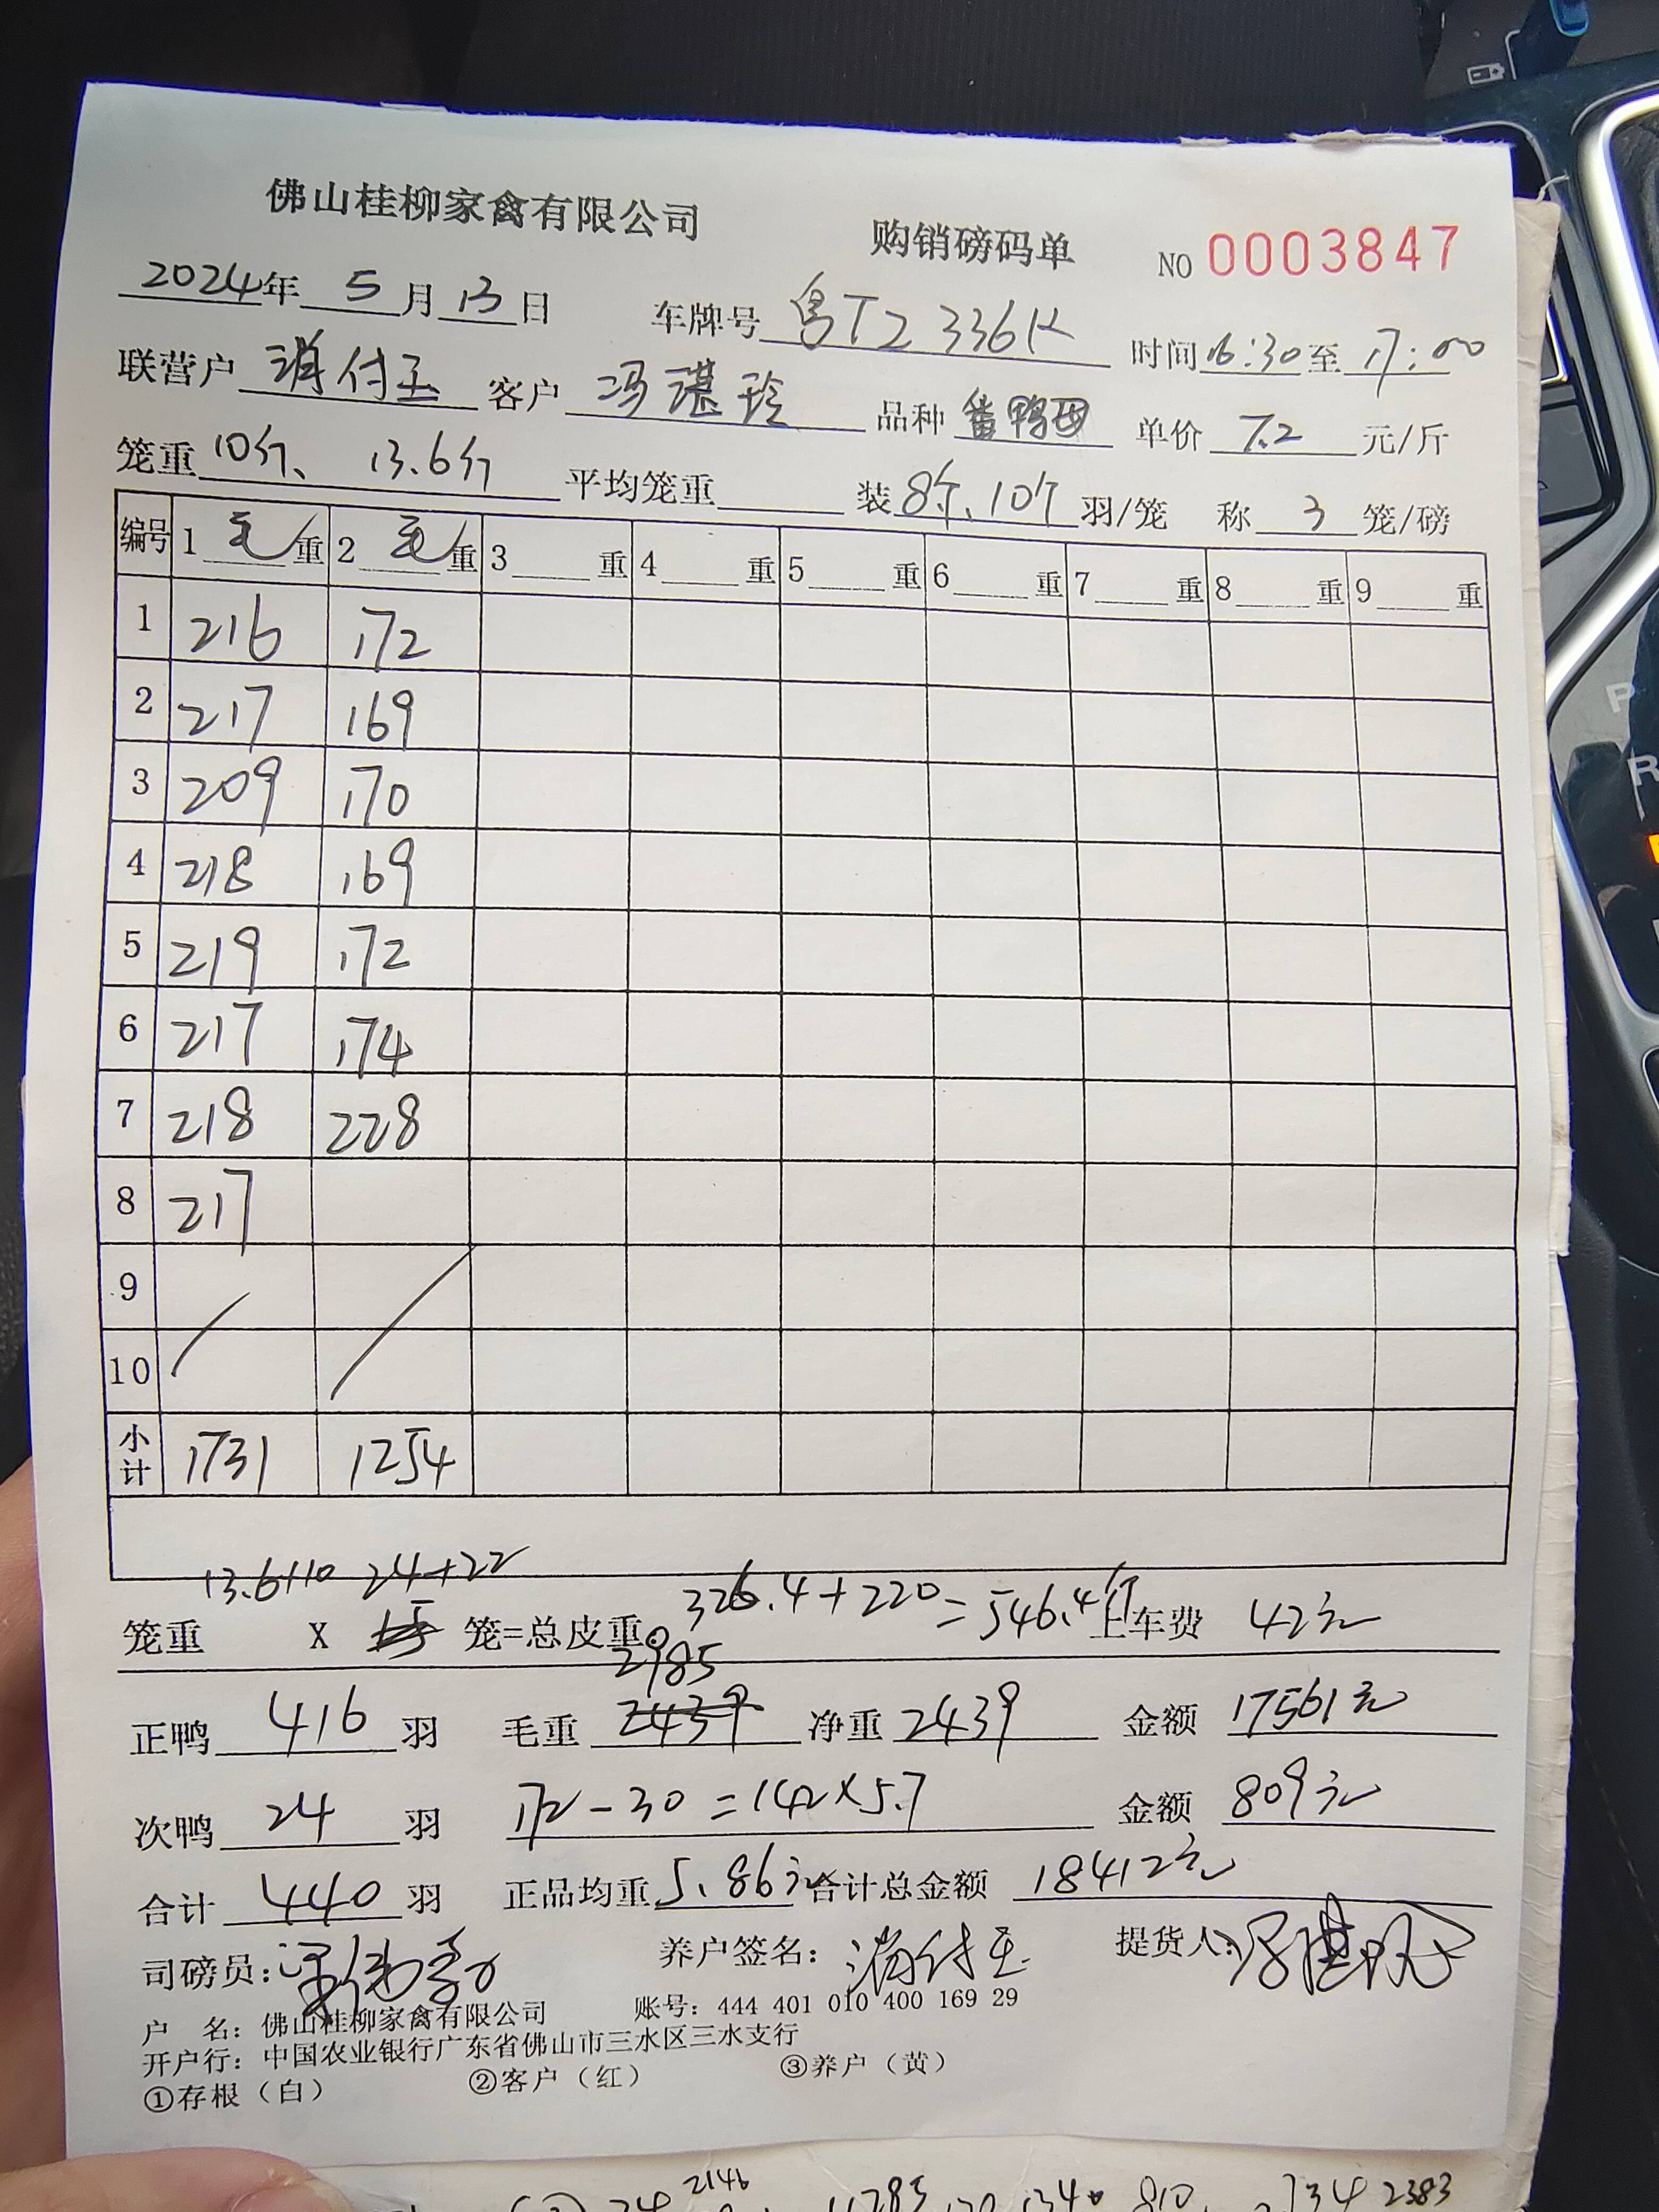 佛山桂柳家禽有限公司 购销磅码单 NO 0003847
2024年 5月 13日 车牌号 粤T2336K 时间 16:30 至 17:00
联营户 付玉 客户 冯湛玲 品种 番鸭母 单价 7.2 元/斤
笼重 10斤、 13.6斤 平均笼重 装 8个、10个 羽/笼 称 3 笼/磅
编号 1 毛 重 2 毛 重 3 重 4 重 5 重 6 重 7 重 8 重 9 重
1 216 172
2 217 169
3 209 170
4 218 169
5 219 172
6 217 174
7 218 228
8 217
9
10
小计 1731 1254
13.6+10 24+22
笼重 X 笼=总皮重: 326.4+220=546.4斤 上车费 42元
2985
正鸭 416 羽 毛重 2439 净重 2439 金额 17561元
次鸭 24 羽 172-30=142×5.7 金额 809元
合计 440 羽 正品均重 5.86 合计总金额 18412元
司磅员: 养户签名: 付玉 提货人:
户 名: 佛山桂柳家禽有限公司 账号: 444 401 010 400 169 29
开户行: 中国农业银行广东省佛山市三水区三水支行
①存根（白） ②客户（红） ③养户（黄）
2146
2383